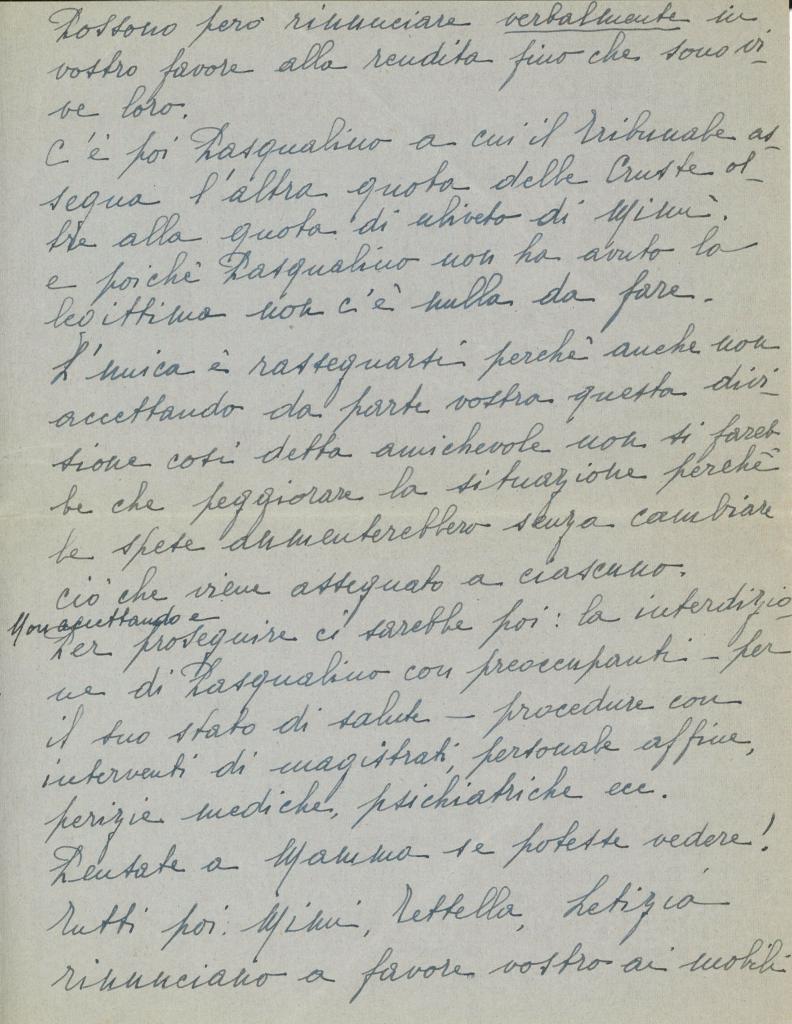 Possono però rinunciare verbalmente in
vostro favore alla rendita fino che sono vi-
ve loro.
C'è poi Pasqualino a cui il Tribunale as-
segna l'altra quota delle Cruste ol-
tre alla quota di uliveto di Mimì.
e poichè Pasqualino non ha avuto la
legittima non c'è nulla da fare.
L'unica è rassegnarsi perchè anche non
accettando da parte vostra questa divi-
sione così detta amichevole non si fareb
be che peggiorare la situazione perchè
le spese aumenterebbero senza cambiare
ciò che viene assegnato a ciascuno.
Non accettando e
Per proseguire ci sarebbe poi: la interdizio-
ne di Pasqualino con preoccupanti - per
il suo stato di salute - procedure con
interventi di magistrati, personale affine,
perizie mediche, psichiatriche ecc.
Pensate a Mamma se potesse vedere!
Tutti poi: Mimì, Tettella, Letizia
rinunciano a favore vostro ai mobili